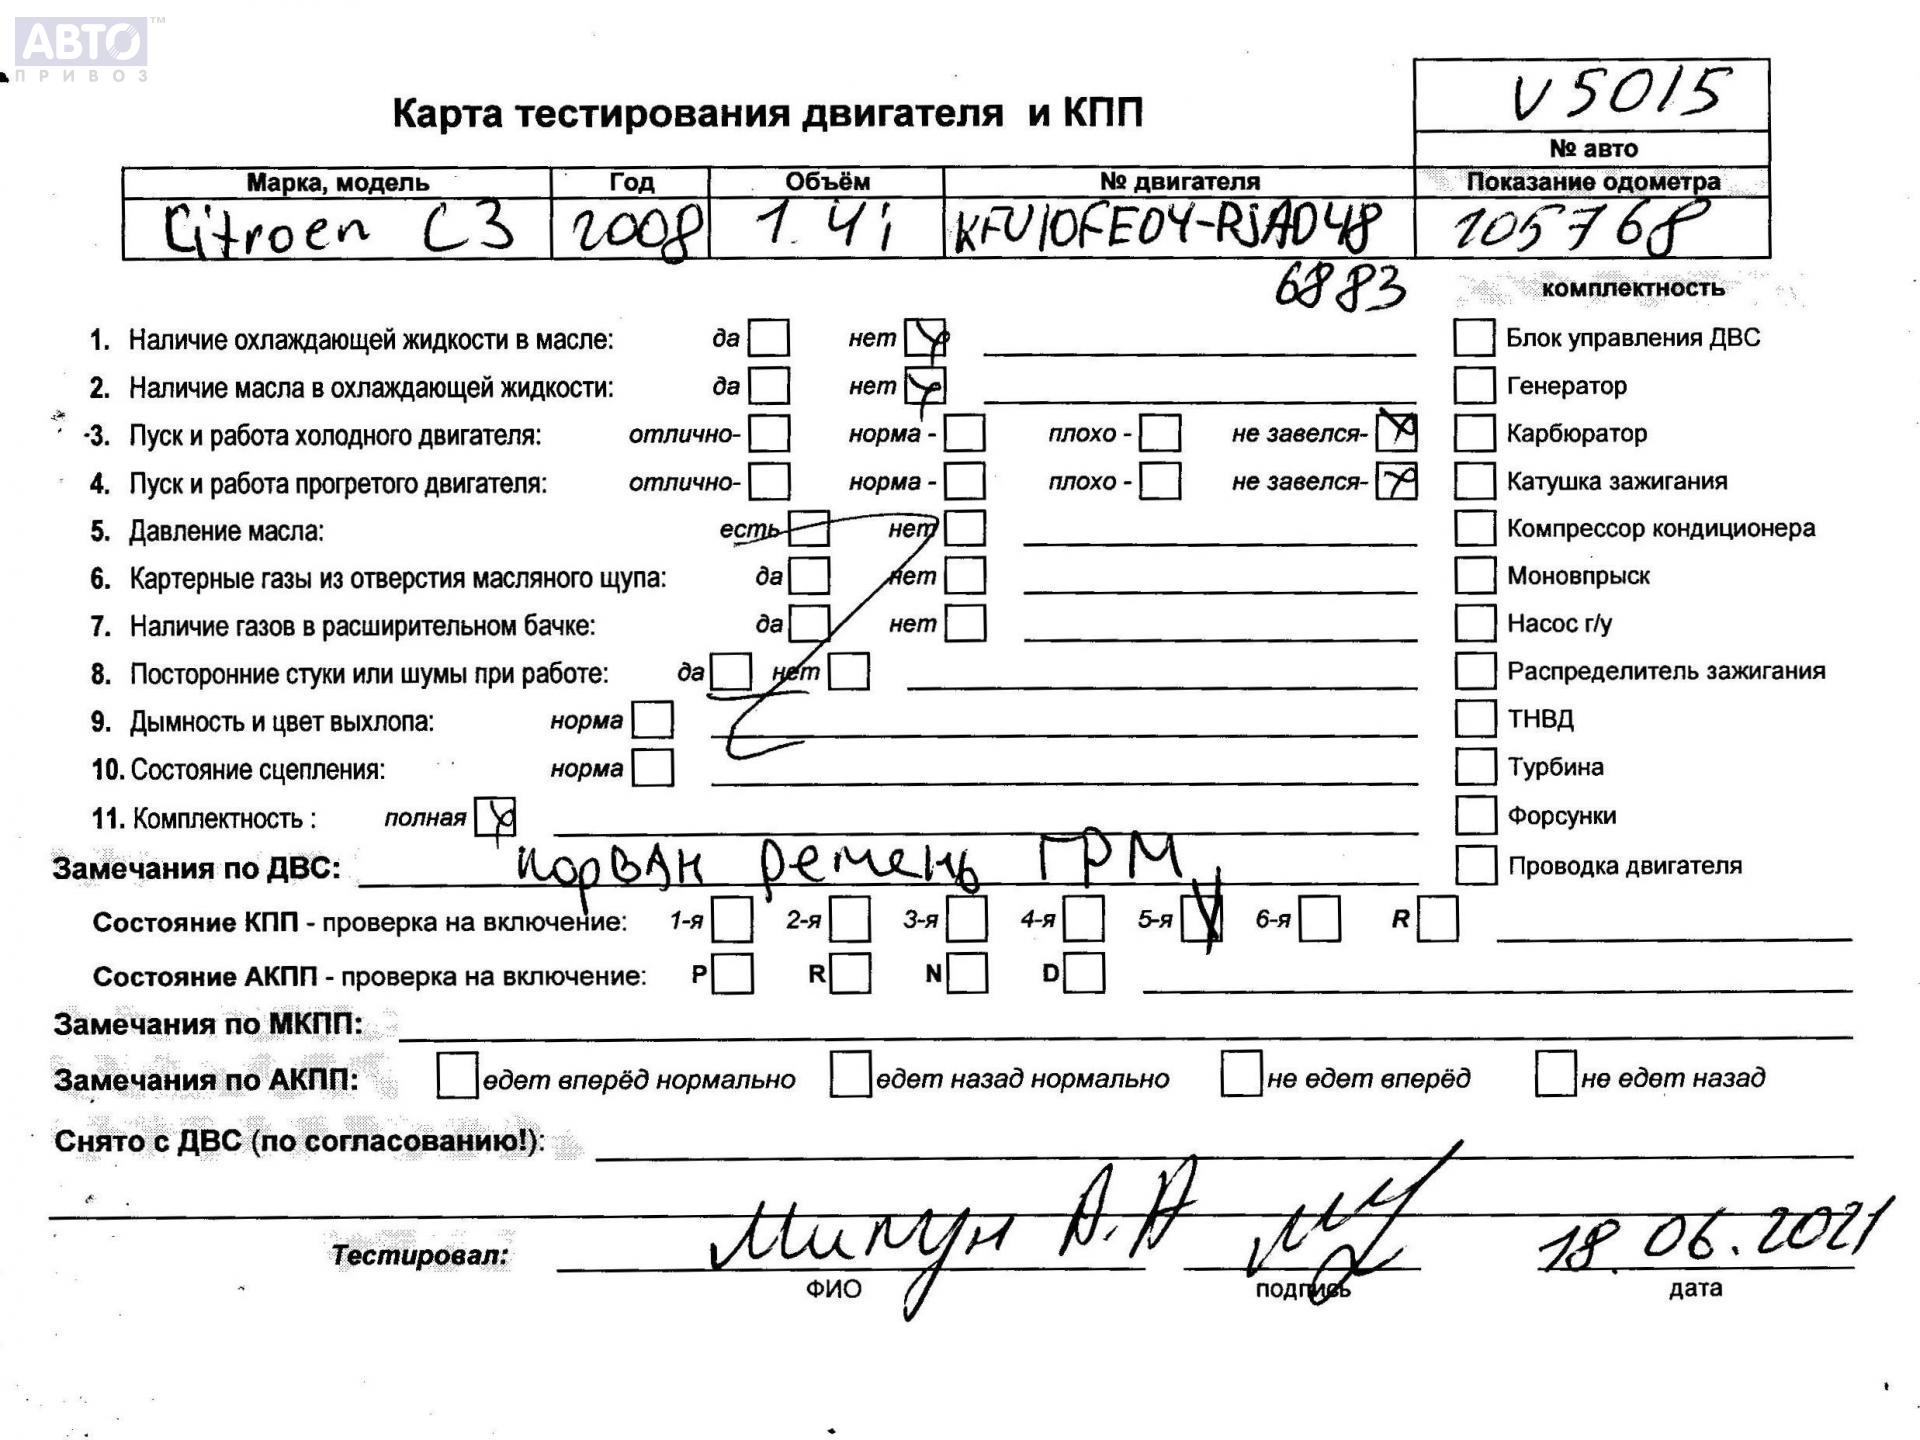 АВТО™
ПРИВОЗ
V5015
Карта тестирования двигателя и КПП
№ авто
Марка, модель Год Объём № двигателя Показание одометра
Citroen C3 2008 1.4i KFV10FE04-PSAD48 105768
6883
комплектность
1. Наличие охлаждающей жидкости в масле: да нет Блок управления ДВС
2. Наличие масла в охлаждающей жидкости: да нет Генератор
3. Пуск и работа холодного двигателя: отлично- норма - плохо - не завелся- Карбюратор
4. Пуск и работа прогретого двигателя: отлично- норма - плохо - не завелся- Катушка зажигания
5. Давление масла: есть нет Компрессор кондиционера
6. Картерные газы из отверстия масляного щупа: да нет Моновпрыск
7. Наличие газов в расширительном бачке: да нет Насос г/у
8. Посторонние стуки или шумы при работе: да нет Распределитель зажигания
9. Дымность и цвет выхлопа: норма ТНВД
10. Состояние сцепления: норма Турбина
11. Комплектность : полная Форсунки
Замечания по ДВС: порван ремень ГРМ Проводка двигателя
Состояние КПП - проверка на включение: 1-я 2-я 3-я 4-я 5-я 6-я R
Состояние АКПП - проверка на включение: P R N D
Замечания по МКПП:
Замечания по АКПП: едет вперёд нормально едет назад нормально не едет вперёд не едет назад
Снято с ДВС (по согласованию!):
Тестировал: Мипун А.А 18.06.2021
ФИО подпись дата